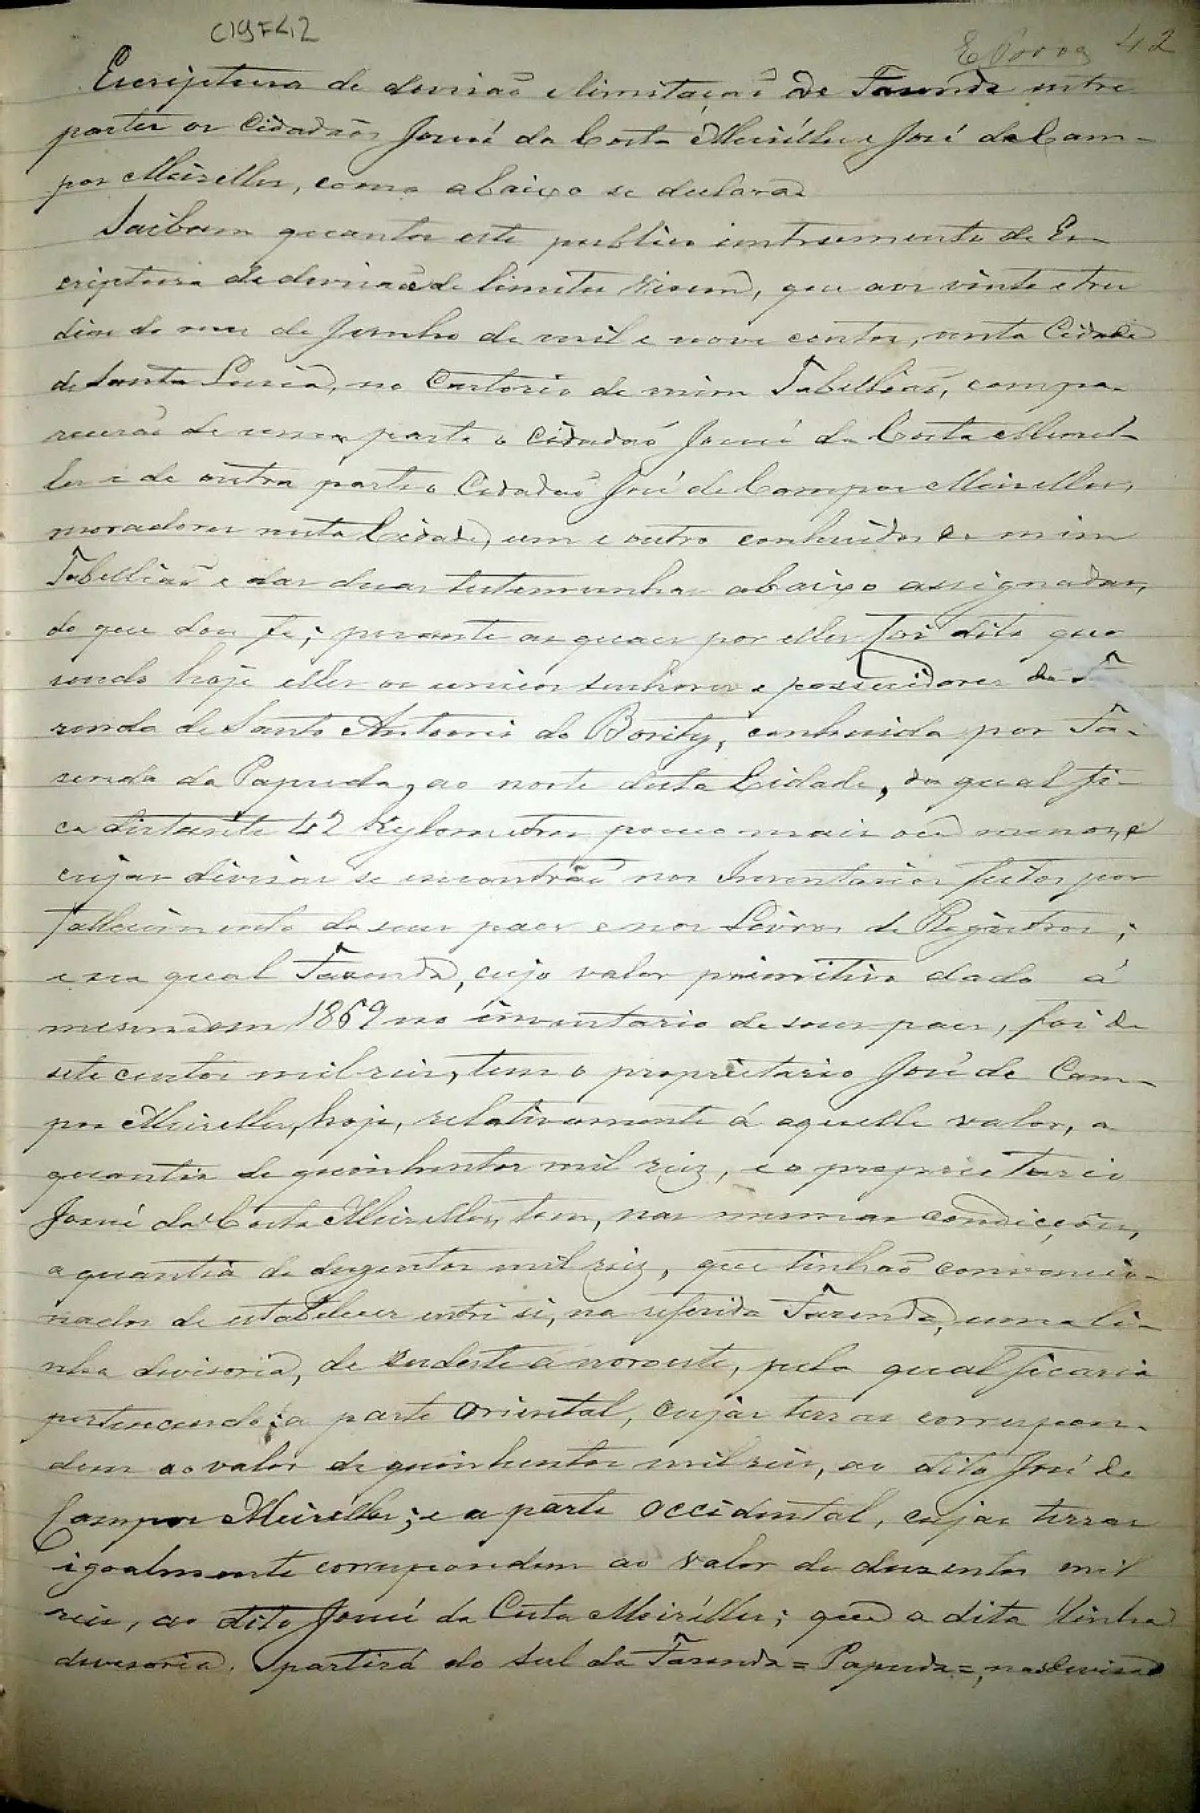 C19F42
42
Escriptura de devisão e limitação de Fazenda entre
partes os Cidadãos Josué da Costa Meirélles e José de Cam-
pos Meirelles, como abaixo se declara
Saibam quantos este publico instrumento de Es-
criptura de devisão de limites virem, que aos vinte e tres
dias do mez de Junho de mil e nove centos, nesta Cidade
de Santa Luzia, no Cartorio de mim Tabellião, compa-
recerão de uma parte o Cidadão Josué da Costa Meirel-
les e de outra parte o Cidadão José de Campos Meirelles,
moradores nesta Cidade, um e outro conhecidos de mim
Tabellião e das duas testemunhas abaixo assignadas,
do que dou fé; perante as quaes por elles foi dito que
sendo hoje elles os unicos senhores e possuidores da Fa
zenda de Santo Antonio do Bority, conhecida por Fa-
zenda da Papuda, ao norte desta Cidade, da qual fi-
ca distante 42 kylometros pouco mais ou menos, e
cujas divisas se encontrão nos Inventarios feitos por
fallecimento de seus paes e nos Livros de Registros;
e na qual Fazenda, cujo valor primitivo dado á
mesma em 1869 no inventario de seus paes, foi de
sete centos mil reis, tem o proprietario José de Cam-
pos Meirelles, hoje, relativamente á aquelle valor, a
quantia de quinhentos mil reis, e o proprietario
Josué da Costa Meirelles, tem, nas mesmas condicções,
a quantia de duzentos mil reis, que tinhão convencio-
nados de estabelecer entre si, na referida Fazenda, uma li-
nha divisoria, de sudeste a noroeste, pela qual ficaria
pertencendo: a parte oriental, cujas terras correspon-
dem ao valor de quinhentos mil reis, ao dito José de
Campos Meirelles; e a parte occidental, cujas terras
igoalmente correspondem ao valor de duzentos mil
reis, ao dito Josué da Costa Meirélles; que a dita linha
devisoria. partirá do sul da Fazenda = Papuda =, na devisa